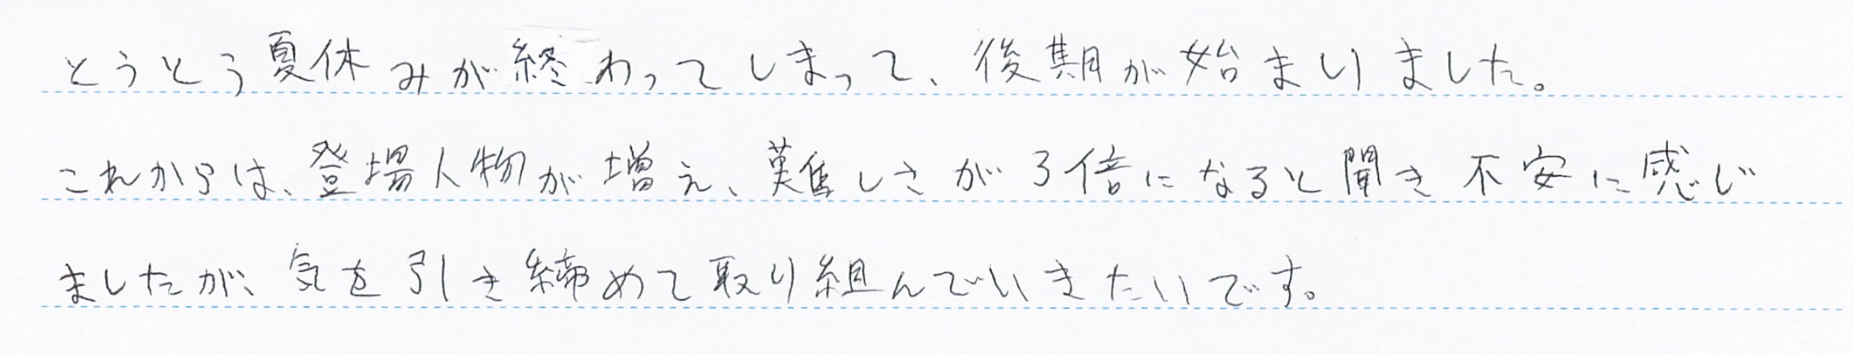 とうとう夏休みが終わってしまって、後期が始まりました。
これからは、登場人物が増え、難しさが3倍になると聞き不安に感じ
ましたが、気を引き締めて取り組んでいきたいです。